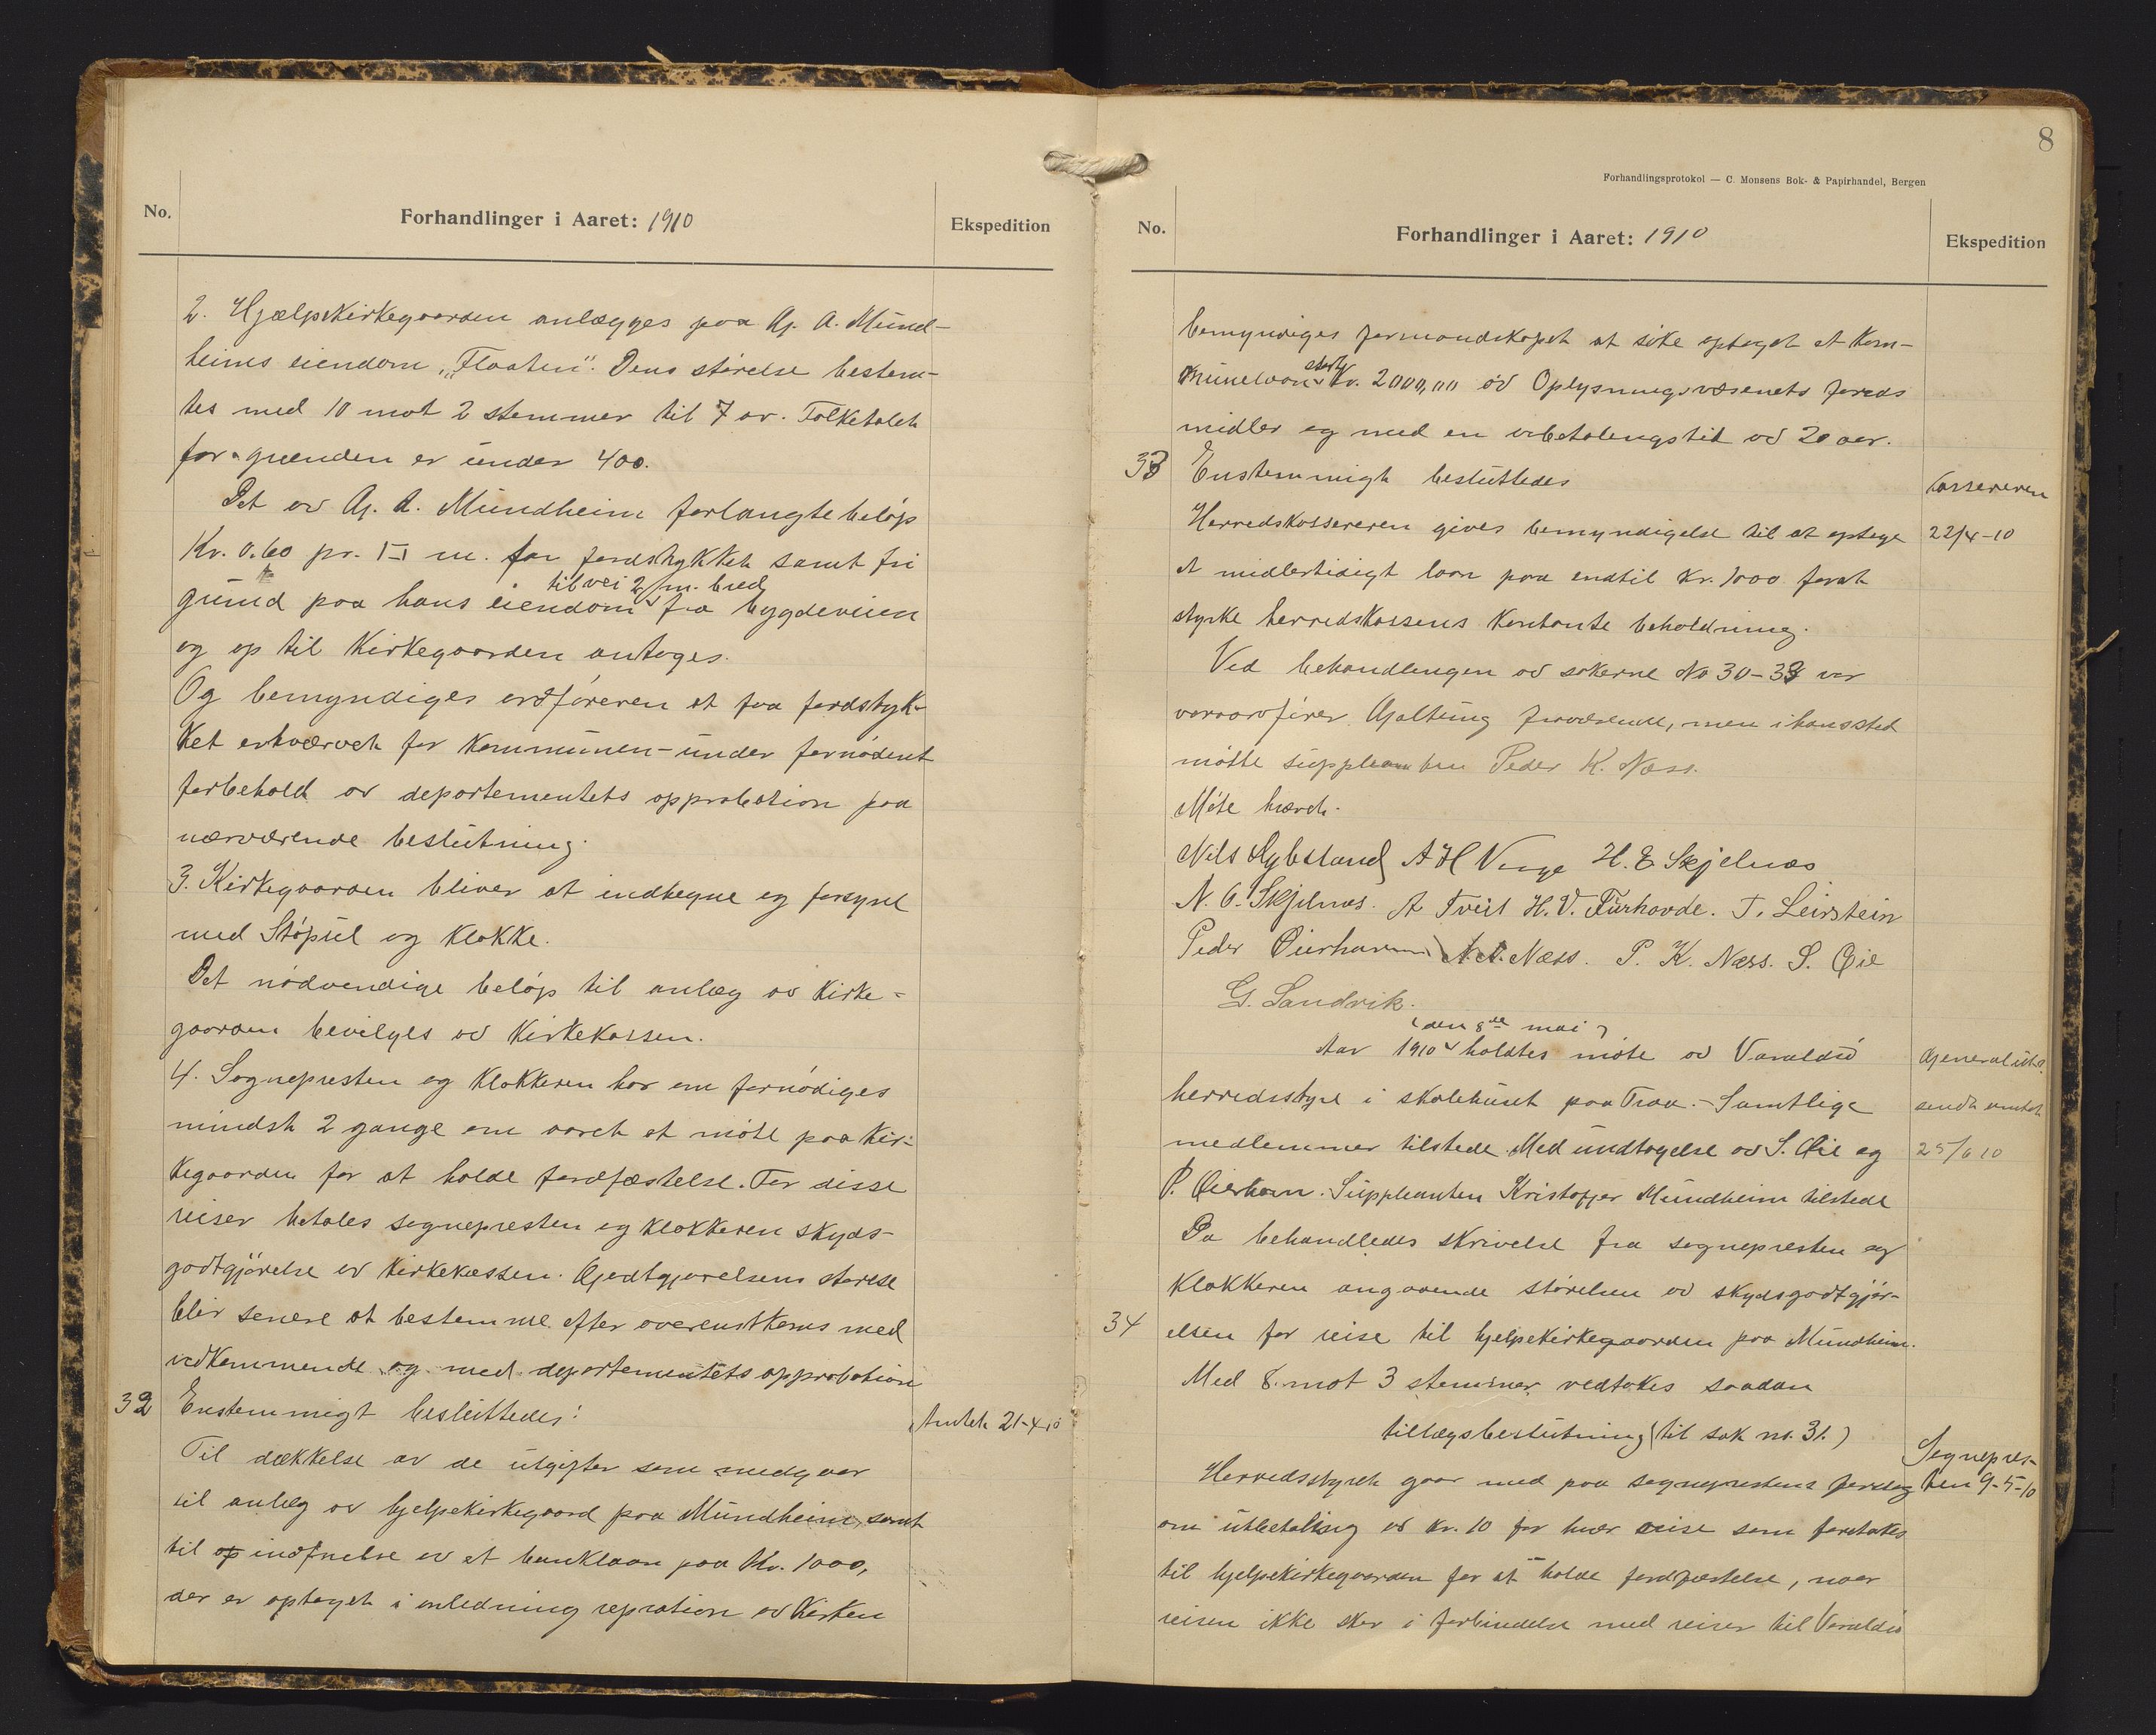 No.
Forhandlinger i Aaret: 1910
Ekspedition
2. Hjælpekirkegaarden anlægges paa Gj. A. Mund-
heims eiendom "Flaaten". Dens størelse bestem-
tes med 10 mot 2 stemmer til 7 ar. Folketalet
for grænden er under 400.
Det av Gj. A. Mundheim forlangte beløp
Kr. 0.60 pr. □ m. for jordstykket samt fri
til vei 2 m. bred
grund paa hans eiendom fra bygdeveien
og op til Kirkegaarden antages.
Og bemyndiges ordføreren at faa jordstyk-
ket erhvervet for Kommunen - under fornødent
forbehold av departementets approbation paa
nærværende beslutning.
3. Kirkegaarden bliver at indhegne og forsyne
med Støpul og Klokke.
Det nødvendige beløp til anlæg av Kirke-
gaarden bevilges av Kirkekassen.
4. Sognepresten og Klokkeren har om fornødiges
mindst 2 gange om aaret at møte paa Kir-
kegaarden for at holde jordfæstelse. For disse
reiser betales sognepresten og Klokkeren skyds-
godtgjørelse av Kirkekassen. Godtgjørelsens størelse
blir senere at bestemme efter overenskoms med
vedkommende og med departementets approbation
32 Enstemmigt besluttedes:
Amtet 21-4-10
Til dækkelse av de utgifter som medgaar
til anlæg av hjelpekirkegaard paa Mundheim, samt
til op indfrielse av et banklaan paa Kr. 1000,
der er optaget i anledning repration av Kirken
8
Forhandlingsprotokol — C. Monsens Bok- & Papirhandel, Bergen
No.
Forhandlinger i Aaret: 1910
Ekspedition
bemyndiges formandskapet at søke optaget et Kom-
stort
munelaan Kr. 2000,00 av Oplysningsvæsenets fonds
midler og med en avbetalingstid av 20 aar.
33 Enstemmigt besluttedes
Kassereren
Herredskassereren gives bemyndigelse til at optage
22/4-10
et midlertidigt laan paa indtil Kr. 1000 forat
styrke herredskassens Kontante beholdning.
Ved behandlingen av sakerne No 30-33 var
varaordfører Gjaltung fraværende, men i hans sted
møtte suppleanten Peder K. Næss.
Møte hævet.
Nils Rybsland A H Vinge H. E Skjelnæs
N. O. Skjelnæs. A Tveit H. V. Furhovde. T. Leirstein
Peder Øierhavn N. A. Næss. P. K. Næss. S. Øie
G. Sandvik.
(den 8de mai)
Aar 1910 holdtes møte av Varaldsø
herredsstyre i skolehuset paa Traa. - Samtlige
Generaluts.
sendt amtet
25/6 10
medlemmer tilstede Med undtagelse av S. Øie og
P. Øierhavn. Suppleanten Kristoffer Mundheim tilstede
Da behandledes skrivelse fra sognepresten og
Klokkeren angaaende størelsen av skydsgodtgjør-
34 elsen for reise til hjelpekirkegaarden paa Mundheim.
Med 8 mot 3 stemmer vedtokes saadan
tillægsbeslutning (til sak no. 31.)
Sognepres-
ten 9-5-10
Herredsstyret gaar med paa sogneprestens forslag
om utbetaling av Kr. 10 for hver reise som foretakes
til hjelpekirkegaarden for at holde jordfæstelse, naar
reisen ikke sker i forbindelse med reiser til Varaldsø